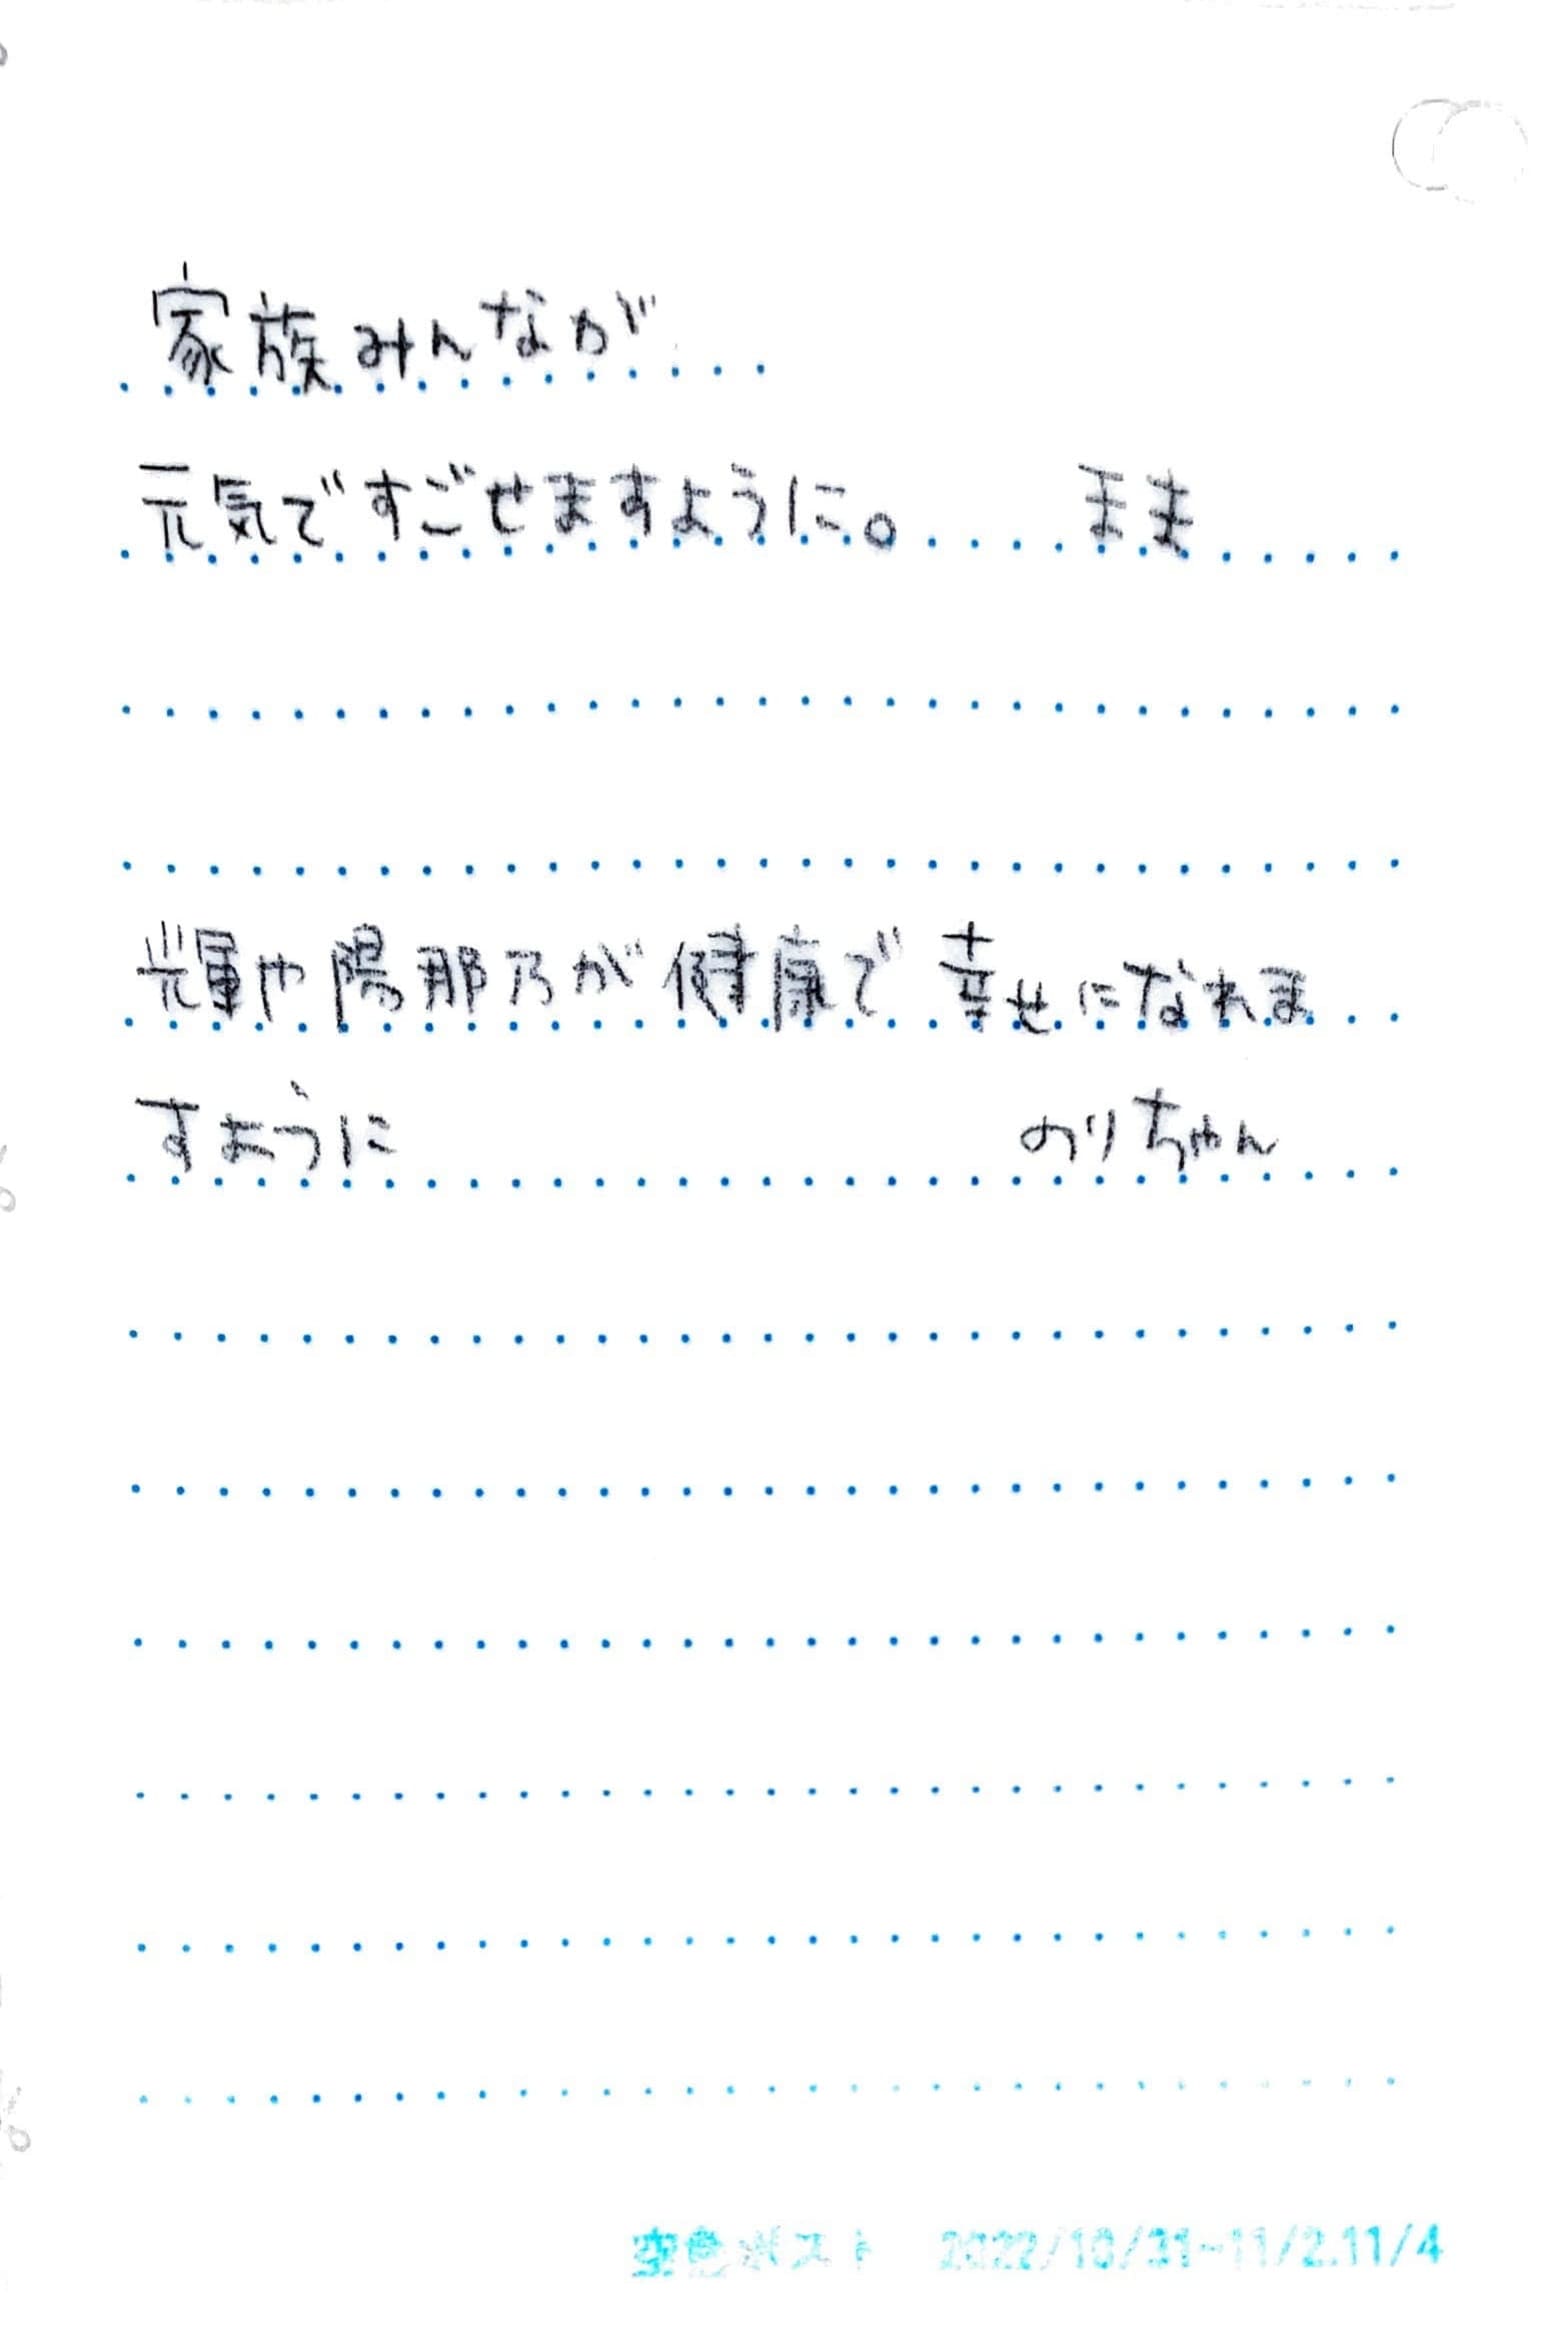 家族みんなが
元気ですごせますように。 まま
輝や陽那乃が健康で幸せになれま
すように のりちゃん
空色ポスト 2022/10/31-11/2.11/4